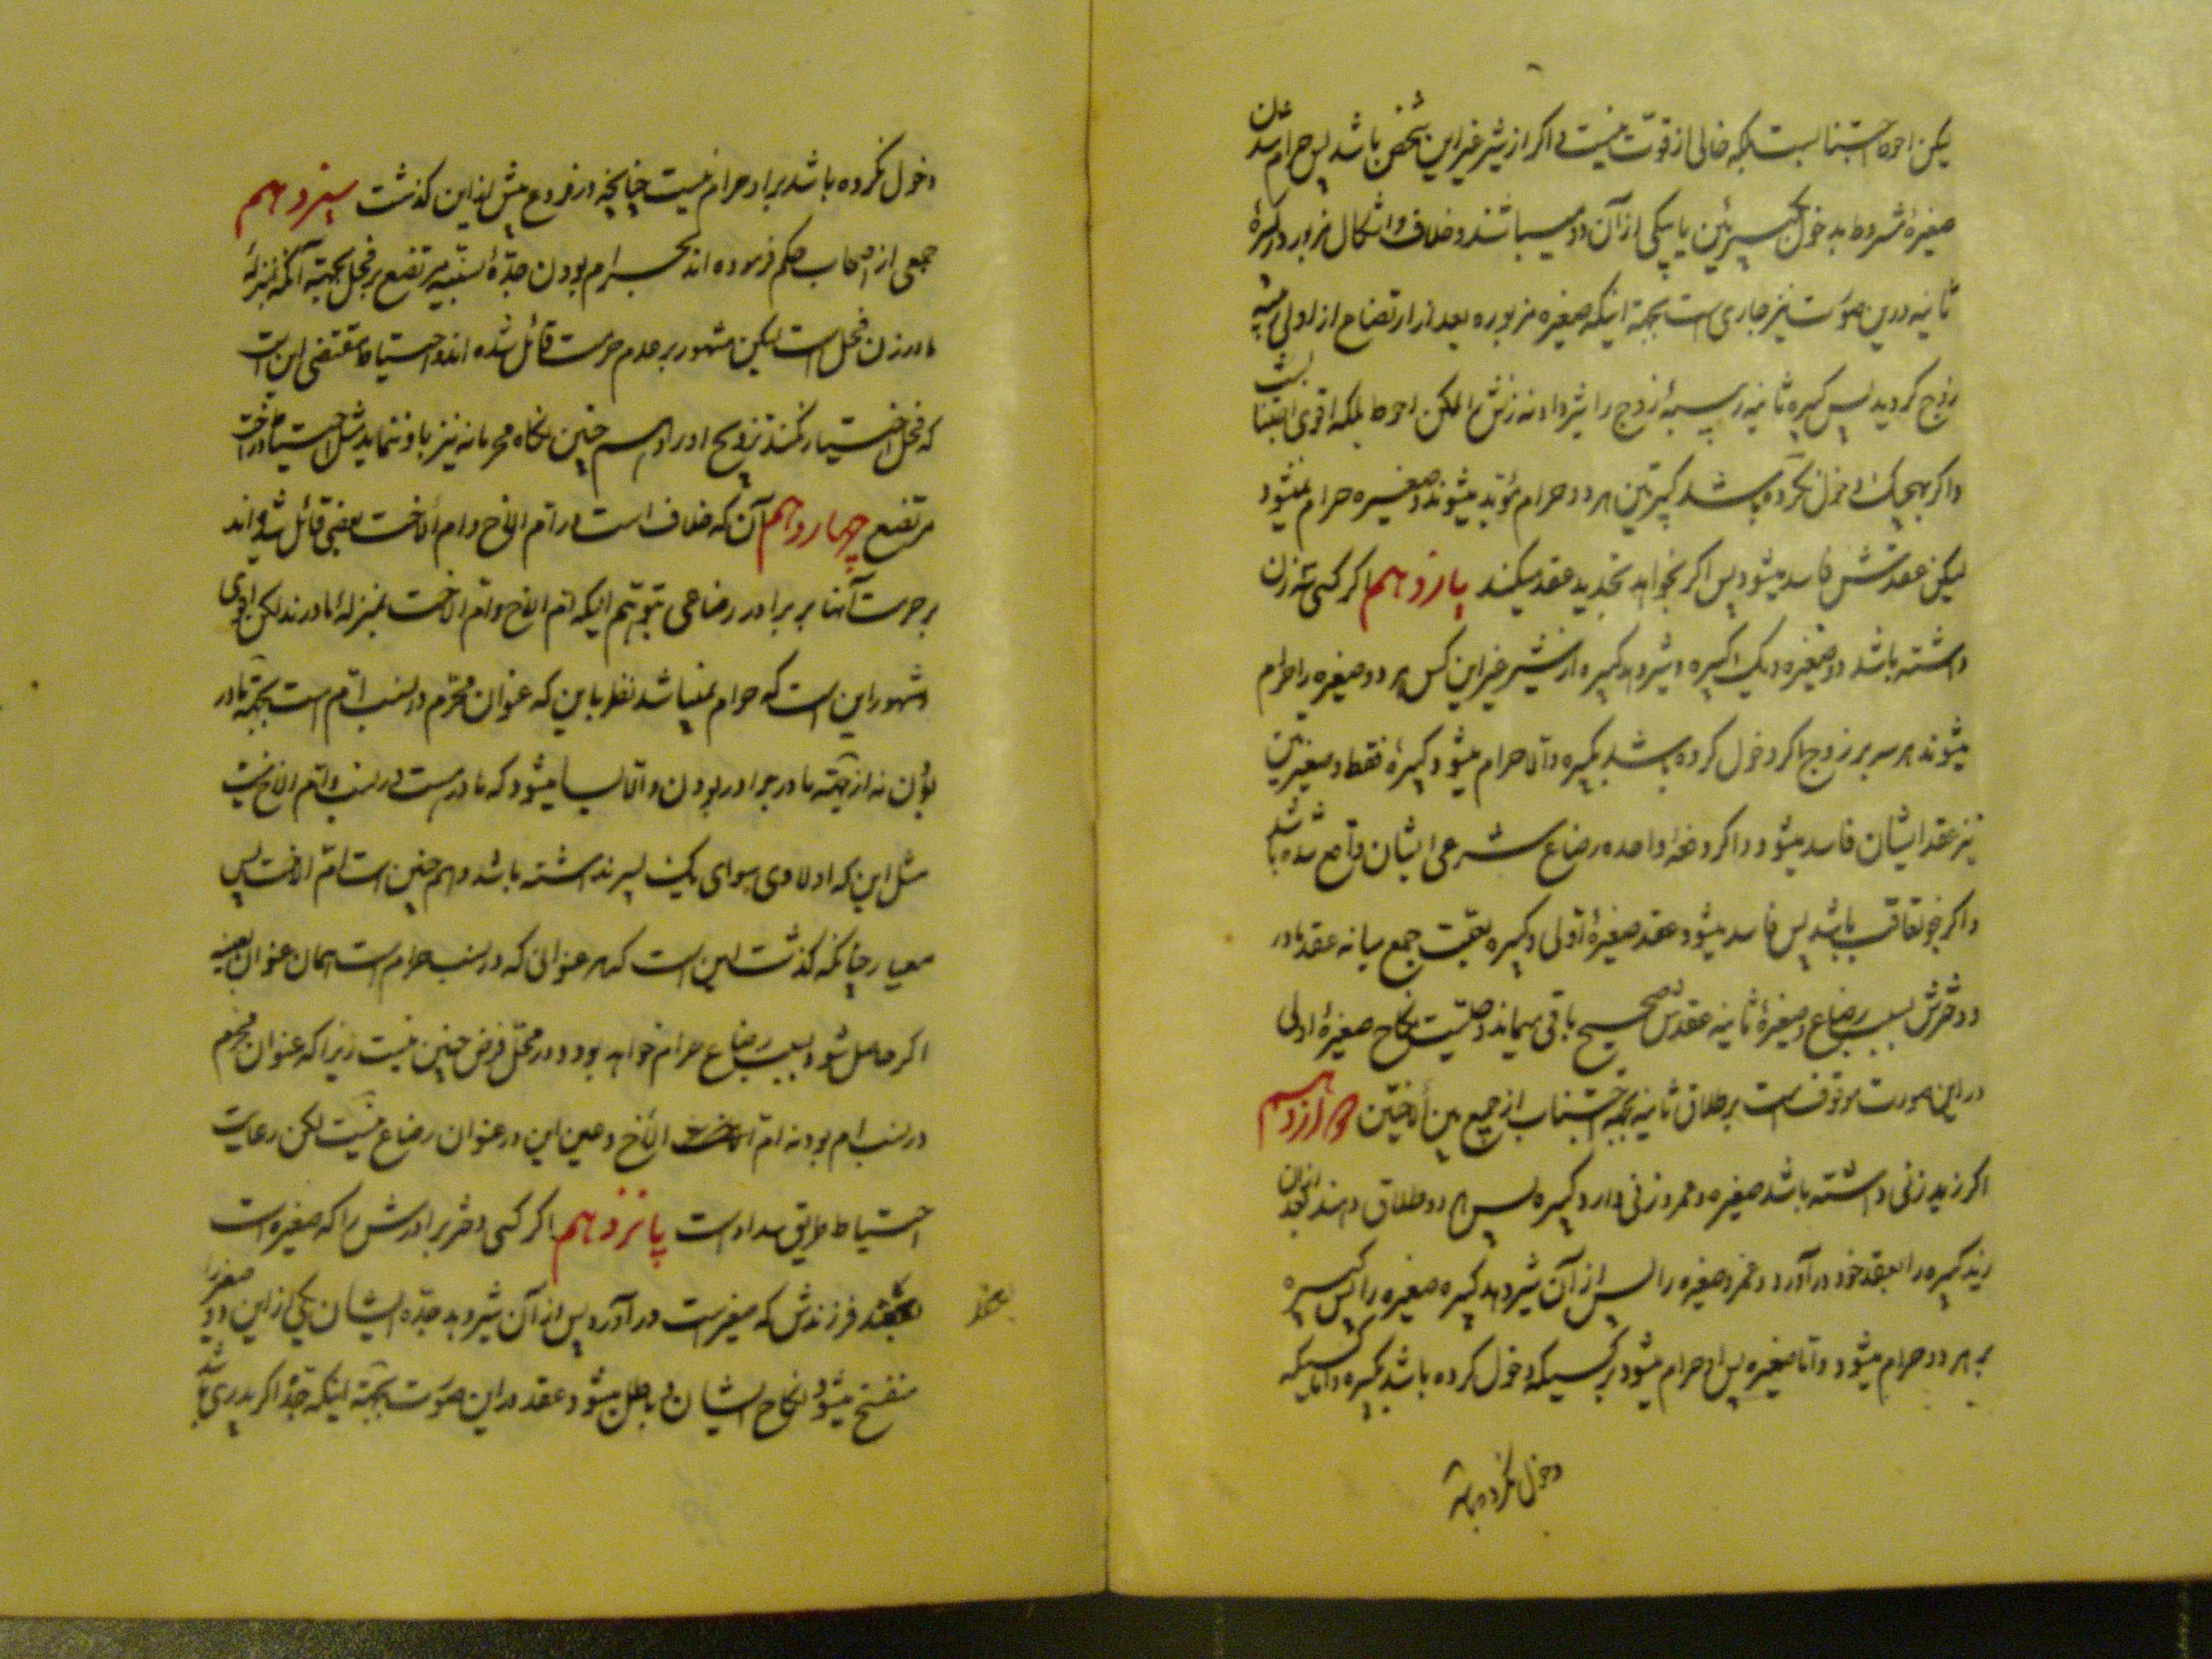 لیکن احوط اجتنابست بلکه خالی از قوت نیست و اکر از شیر غیر این شخص باشد پس حرام شدن
صغیره مشروط بدخول کبیرتین یا بیکی از آن دو میباشند و خلاف و اشکال مزبور در کبیرهٔ
ثانیه درین صورت نیز جاری است بجهة اینکه صغیره مزبوره بعد از ارتضاع از اولی ربیبه
زوج کردید پس کبیره ثانیه ربیبهٔ زوج را شیر داد نه زنش را لکن احوط بلکه اقوی اجتنابست
و اکر بهیچیک دخول نکرده باشد کبیرتین هر دو حرام مؤبد میشوند و صغیره حرام نمیشود
لیکن عقدش فاسد میشود پس اکر بخواهد تجدید عقد میکند یازدهم اکر کسی سه زن
داشته باشد دو صغیره و یک کبیره و شیر دهد کبیره از شیر غیر این کس هر دو صغیره را حرام
میشوند هر سه بر زوج اکر دخول کرده باشد بکبیره و الا حرام میشود کبیرهٔ فقط و صغیرتین
نیز عقد ایشان فاسد میشود و اکر دفعهٔ واحده رضاع شرعی ایشان واقع شده باشد
و اکر بتعاقب باشد پس فاسد میشود عقد صغیرهٔ اولی و کبیره بعلت جمع میانه عقد مادر
و دخترش بسبب رضاع و صغیرهٔ ثانیه عقدش صحیح باقی میماند و حلیت نکاح صغیرهٔ اولی
در این صورت موقوف است بر طلاق ثانیه بجهة اجتناب از جمیع بین أختین دوازدهم
اکر زید زنی داشته باشد صغیره و عمرو زنی دارد کبیره پس هر دو طلاق دهند بعد از آن
زید کبیره را بعقد خود در آورد و عمرو صغیره را پس از آن شیر دهد کبیره صغیره را پس کبیره
بهر دو حرام میشود و اما صغیره پس او حرام میشود بر کسیکه دخول کرده باشد بکبیره و اما کسیکه
دخول نکرده باشد
دخول نکرده باشد بر او حرام نیست چنانچه در فروع پیش از این کذشت سیزدهم
جمعی از اصحاب حکم فرموده اند بحرام بودن جدّهٔ نسبیه مرتضع بر فحل بجهة آنکه بمنزلهٔ
مادر زن فحل است لیکن مشهور بر عدم حرمت قائل شده اند و احتیاط مقتضی این است
که فحل اختیار نکند تزویج او را و هم چنین نکاه محرمانه نیز باو ننماید مثل احتیاط در اخت
مرتضع چهاردهم آن که خلاف است در ام الاخ و ام الاخت بعضی قائل شده اند
بر حرمت آنها بر برادر رضاعی بتوهم اینکه ام الاخ و ام الاخت بمنزلهٔ مادرند لکن اقوی
و مشهور این است که حرام نمیباشد نظر باین که عنوان محرّم در نسب ام است بجهة مادر
بودن نه از جهة مادر برادر بودن و اما بسا میشود که مادرست در نسب و ام الاخ نیست
مثل این که اولادی سوای یک پسر نداشته باشد و هم چنین است ام الاخت پس
معیار چنانکه کذشت این است که هر عنوانی که در نسب حرام است همان عنوان بعینه
اکر حاصل شود بسبب رضاع حرام خواهد بود و در محل فرض چنین نیست زیرا که عنوان محرم
در نسب ام بود نه ام الاخ و عین این در عنوان رضاع نیست لکن رعایت
احتیاط طریق سداد است پانزدهم اکر کسی دختر برادرش را که صغیره است
بعقد فرزندش که صغیر است در آورد پس از آن شیر دهد جدّه ایشان یکی از این دو صغیر را
بعقد
منفسخ میشود نکاح ایشان و باطل میشود عقد در این صورت بجهة اینکه جدّه اکر پدری باشد